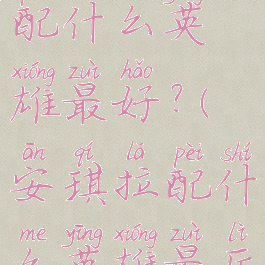 配什么英
xióng zuì hǎo
雄最好？（
ān qí lā pèi shí
安琪拉配什
me yīng xióng zuì lì
么英雄最厉